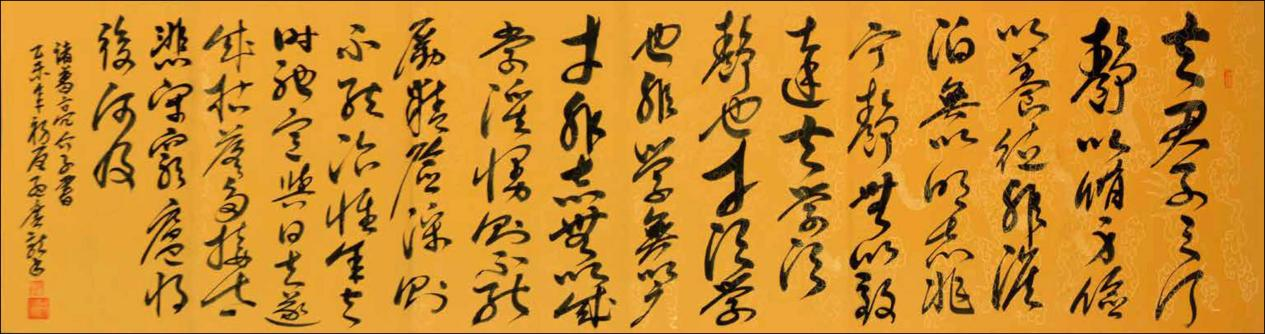 夫君子之行
靜以脩身儉
以養德非澹
泊無以明志非
宁靜無以致
遠夫學須
靜也才須學
也非學無以广
才非志無以成
學淫慢則不能
励精險躁則
不能治性年与
時馳意與日去遂
成枯落多接世
悲守窮廬將
復何及
諸葛亮介子書
乙未年初夏